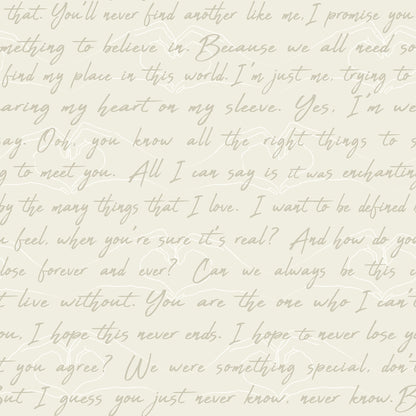 that. You'll never find another like me. I promise you
mething to believe in. Because we all need so
find my place in this world. I'm just me, trying to
aring my heart on my sleeve. Yes, I'm we
ay. Ooh, you know all the right things to s
g to meet you. All I can say is it was enchantin
by the many things that I love. I want to be defined
u feel, when you're sure it's real? And how do yo
lose forever and ever? Can we always be this c
t live without. You are the one who I can't
ou, I hope this never ends. I hope to never lose yo
t you agree? We were something special, don'
But I guess you just never know, never know. B